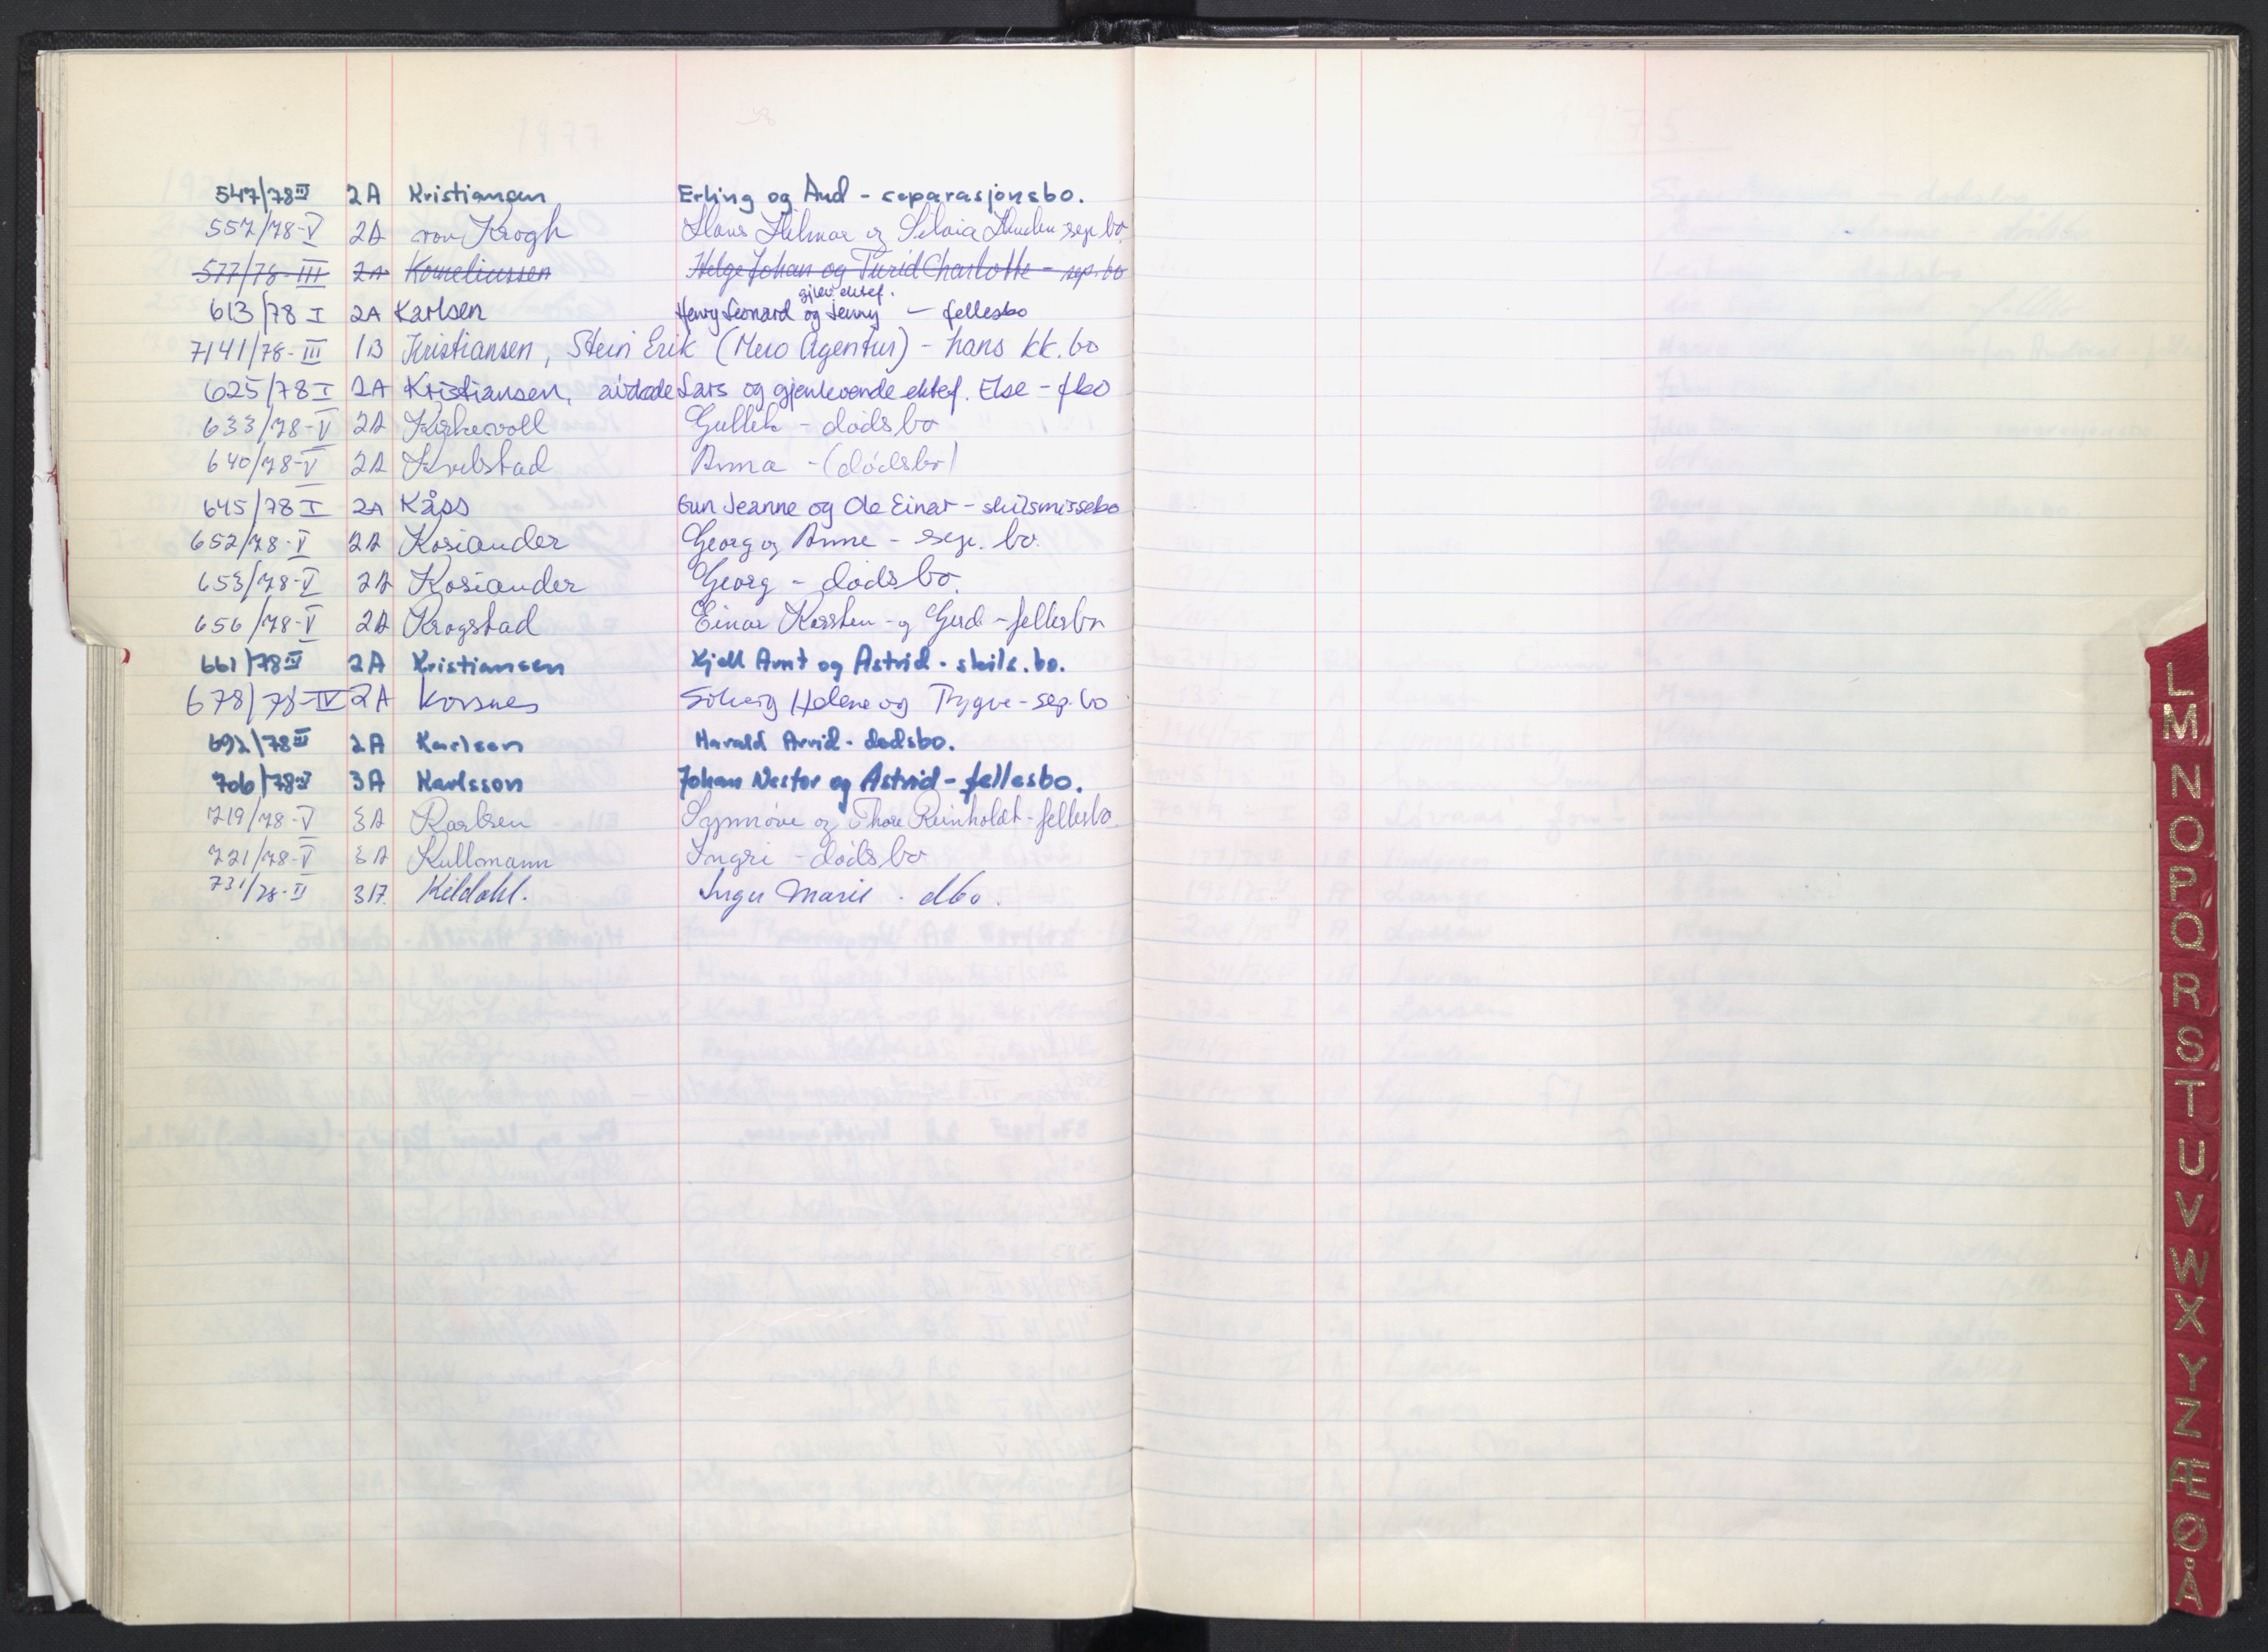 547/78 III 2A Kristiansen Erling og Aud - separasjonsbo.
557/78-V 2A von Krogh Hans Hilmar og Silvia sep. bo
577/78-III 2A Korneliussen Helge Johan og Turid Charlotte - sep. bo
gjlev. ektef.
613/78 I 2A Karlsen Henry Leonard og Jenny - fellesbo
7141/78-III 1B Kristiansen, Stein Erik (Mero Agentur) - hans kk. bo
625/78 I 2A Kristiansen, avdøde Lars og gjenlevende ektef. Else - fbo
633/78-V 2A Kirkevoll Gullek - dødsbo
640/78-V 2A Kvilstad Anna - (dødsbo)
645/78 I 2A Kåss Gun Jeanne og Ole Einar - skilsmissebo
652/78-V 2A Kosiander Georg og Anne - sep. bo.
653/78-V 2A Kosiander Georg - dødsbo.
656/78-V 2A Krogstad Einar Karsten - og Gerd - fellesbo
661/78 III 2A Kristiansen Kjell Arnt og Astrid - skils. bo.
678/78-IV 2A Korsnes Solveig Helene og Trygve - sep. bo
692/78 III 2A Karlsen Harald Arvid - dødsbo.
706/78 3A Karlsson Johan Nestor og Astrid - fellesbo.
719/78-V 3A Karlsen Synnöve og Thore Reinholdt - fellesbo
721/78-V 3A Kullmann Ingri - dödsbo
731/78-II 3A Kildahl. Inger Marie - dbo.
L
M
N
O
P
Q
R
S
T
U
V
W
X
Y
Z
Æ
Ø
Å